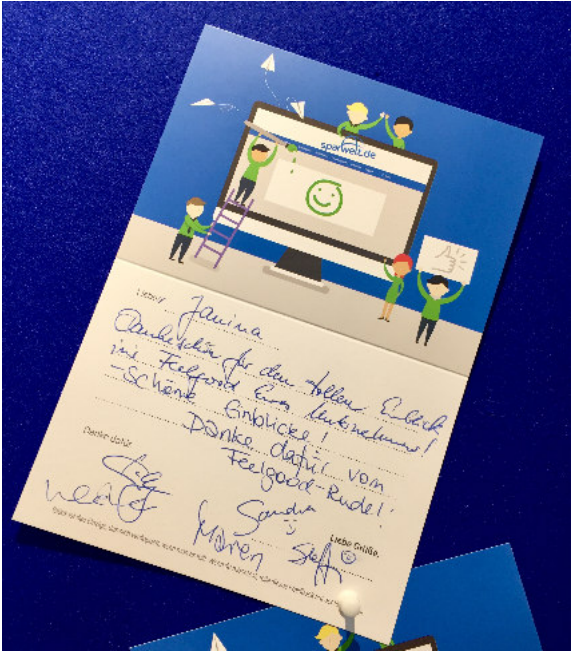 sparwelt.de
Liebe/r Janina
Dankeschön für den tollen Einblick
ins Feelgood Eures Unternehmens!
- Schöne Einblicke!
Danke dafür vom
Feelgood-Rudel!
Danke dafür
Sandra
Liebe Grüße,
Maren Steffi